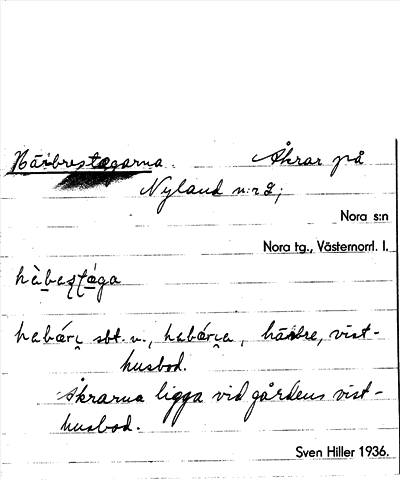 Härbrestægarna. Åkrar på
Nyland n:r 2;
Nora s:n
Nora tg., Västernorrl. l.
hàbastǽga
habǽri sbt. n., habǽria, härbre, vist-
husbod.
Åkrarna ligga vid gårdens vist-
husbod.
Sven Hiller 1936.